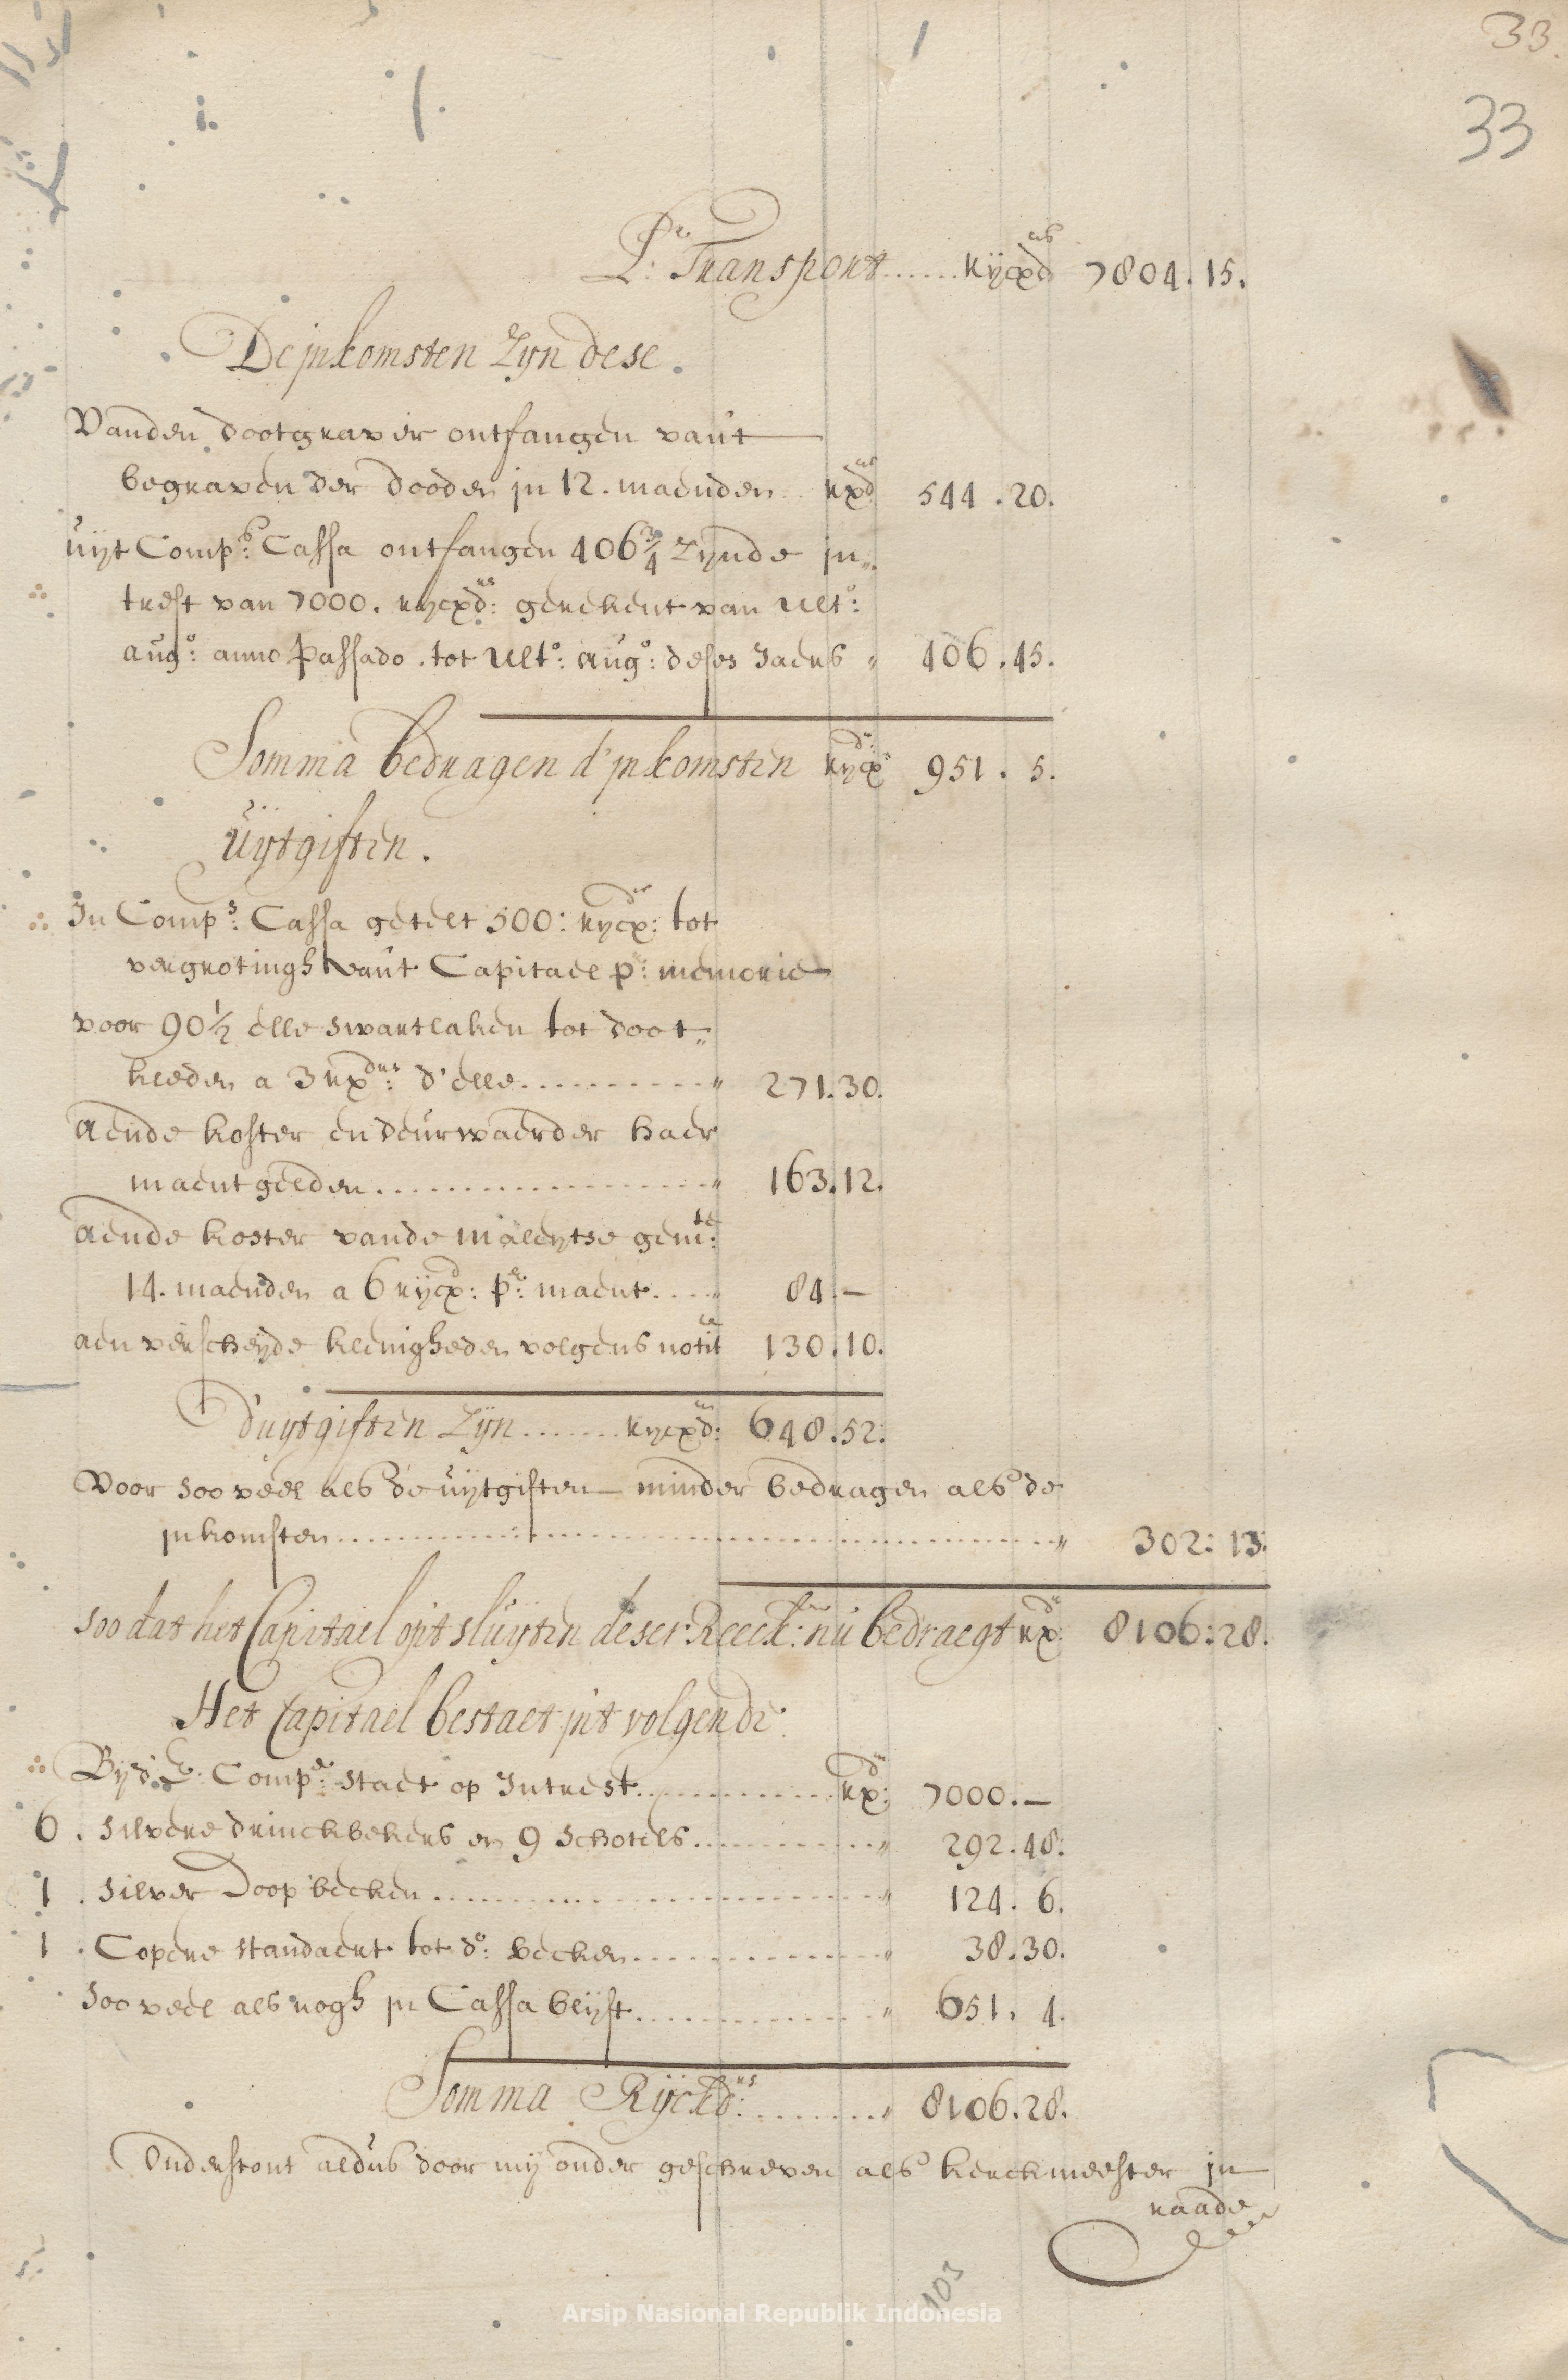 33.
33
Pr: Transport ...... Rijcxdrs 7804. 15.
De jnkomsten Zijn dese.
Vanden dootgraver ontfangen vant
begraven der dooden jn 12. maenden .. rxdrs 544. 20.
uijt Comps: Cassa ontfangen 406¾ zijnde jn„
trest van 7000. rijcxdrs: gerekent van ulto:
augo: anno passado. tot ulto: augo: deses Jaers „ 406. 45.
Somma bedragen d'jnkomsten Rijcxdrs 951. 5.
Uijtgiften.
In Comps: Cassa getelt 500: rijcxdrs: tot
vergrotingh vant Capitael pr: memorie
voor 90½ elle swart laken tot doot„
kleden a 3 rxdrs: d'elle .......... „ 271. 30.
aende koster en deurwaerder haer
maentgelden .................. „ 163. 12.
aende koster vande maleijtse gemte:
14. maenden a 6 rijcxd: pr: maent .... „ 84. —
aen verscheijde klenigheden volgens notitie 130. 10.
d'uijtgiften Zijn ....... rijcxdrs: 648. 52:
Voor soo veel als de uijtgiften minder bedragen als de
jnkomsten .................................... „ 302: 13:
soo dat het Capitael op't sluijten deser Reeck: nu bedraegt rxdrs: 8106: 28.
Het Capitael bestaet jn't volgende:
Bij d' E: Compe: staet op Intrest ............ rxdrs: 7000. —
6. silvere drinckbekers en 9 schotels ............ „ 292. 48:
1. silver Doop becken ........................ „ 124. 6.
1. Copere standaert tot do: becken .............. „ 38. 30.
soo veel als nogh jn Cassa blijft .............. „ 651. 4.
Somma Rijckdrs: ........ „ 8106. 28.
Onderstont aldus door mij onder geschreven als kerckmeester jn
raade
103
Arsip Nasional Republik Indonesia